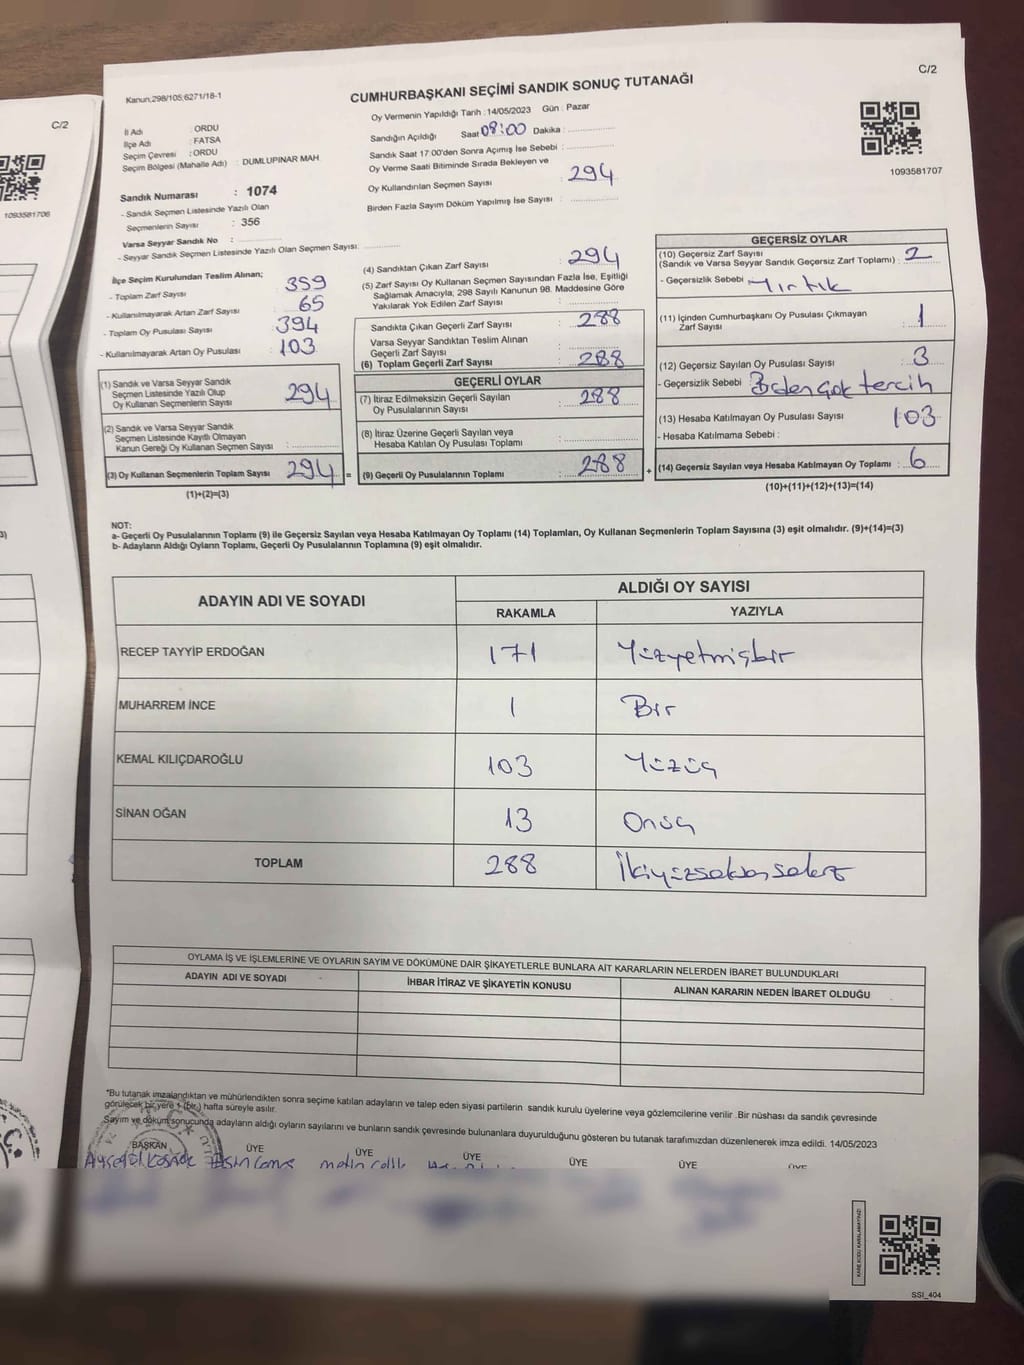 C/2
1093581706
C/2
Kanun:298/105;6271/18-1
CUMHURBAŞKANI SEÇİMİ SANDIK SONUÇ TUTANAĞI
1093581707
İl Adı : ORDU
İlçe Adı : FATSA
Seçim Çevresi : ORDU
Seçim Bölgesi (Mahalle Adı) : DUMLUPINAR MAH.
Sandık Numarası : 1074
- Sandık Seçmen Listesinde Yazılı Olan
Seçmenlerin Sayısı : 356
Varsa Seyyar Sandık No :
- Seyyar Sandık Seçmen Listesinde Yazılı Olan Seçmen Sayısı:
Oy Vermenin Yapıldığı Tarih :14/05/2023 Gün : Pazar
Sandığın Açıldığı Saat 08:00 Dakika :
Sandık Saat 17:00'den Sonra Açımış İse Sebebi :
Oy Verme Saati Bitiminde Sırada Bekleyen ve
Oy Kullandırılan Seçmen Sayısı : 294
Birden Fazla Sayım Döküm Yapılmış İse Sayısı :
İlçe Seçim Kurulundan Teslim Alınan;
- Toplam Zarf Sayısı : 359
- Kullanılmayarak Artan Zarf Sayısı : 65
- Toplam Oy Pusulası Sayısı : 394
- Kullanılmayarak Artan Oy Pusulası : 103
(1) Sandık ve Varsa Seyyar Sandık
Seçmen Listesinde Yazılı Olup
Oy Kullanan Seçmenlerin Sayısı : 294
(2) Sandık ve Varsa Seyyar Sandık
Seçmen Listesinde Kayıtlı Olmayan
Kanun Gereği Oy Kullanan Seçmen Sayısı :
(3) Oy Kullanan Seçmenlerin Toplam Sayısı : 294 =
(1)+(2)=(3)
(4) Sandıktan Çıkan Zarf Sayısı : 294
(5) Zarf Sayısı Oy Kullanan Seçmen Sayısından Fazla İse, Eşitliği
Sağlamak Amacıyla, 298 Sayılı Kanunun 98. Maddesine Göre
Yakılarak Yok Edilen Zarf Sayısı :
Sandıkta Çıkan Geçerli Zarf Sayısı : 288
Varsa Seyyar Sandıktan Teslim Alınan
Geçerli Zarf Sayısı :
(6) Toplam Geçerli Zarf Sayısı : 288
GEÇERLİ OYLAR
(7) İtiraz Edilmeksizin Geçerli Sayılan
Oy Pusulalarının Sayısı : 288
(8) İtiraz Üzerine Geçerli Sayılan veya
Hesaba Katılan Oy Pusulası Toplamı :
(9) Geçerli Oy Pusulalarının Toplamı : 288 +
GEÇERSİZ OYLAR
(10) Geçersiz Zarf Sayısı
(Sandık ve Varsa Seyyar Sandık Geçersiz Zarf Toplamı) : 2
- Geçersizlik Sebebi : Yırtık
(11) İçinden Cumhurbaşkanı Oy Pusulası Çıkmayan
Zarf Sayısı : 1
(12) Geçersiz Sayılan Oy Pusulası Sayısı : 3
- Geçersizlik Sebebi : Birden çok tercih
(13) Hesaba Katılmayan Oy Pusulası Sayısı : 103
- Hesaba Katılmama Sebebi :
(14) Geçersiz Sayılan veya Hesaba Katılmayan Oy Toplamı : 6
(10)+(11)+(12)+(13)=(14)
NOT:
a- Geçerli Oy Pusulalarının Toplamı (9) ile Geçersiz Sayılan veya Hesaba Katılmayan Oy Toplamı (14) Toplamları, Oy Kullanan Seçmenlerin Toplam Sayısına (3) eşit olmalıdır. (9)+(14)=(3)
b- Adayların Aldığı Oyların Toplamı, Geçerli Oy Pusulalarının Toplamına (9) eşit olmalıdır.
ADAYIN ADI VE SOYADI ALDIĞI OY SAYISI
RAKAMLA YAZIYLA
RECEP TAYYİP ERDOĞAN 171 Yüzyetmişbir
MUHARREM İNCE 1 Bir
KEMAL KILIÇDAROĞLU 103 Yüzüç
SİNAN OĞAN 13 Onüç
TOPLAM 288 İkiyüzseksensekiz
OYLAMA İŞ VE İŞLEMLERİNE VE OYLARIN SAYIM VE DÖKÜMÜNE DAİR ŞİKAYETLERLE BUNLARA AİT KARARLARIN NELERDEN İBARET BULUNDUKLARI
ADAYIN ADI VE SOYADI İHBAR İTİRAZ VE ŞİKAYETİN KONUSU ALINAN KARARIN NEDEN İBARET OLDUĞU
*Bu tutanak imzalandıktan ve mühürlendikten sonra seçime katılan adayların ve talep eden siyasi partilerin sandık kurulu üyelerine veya gözlemcilerine verilir .Bir nüshası da sandık çevresinde
görülecek bir yere 1 (bir) hafta süreyle asılır.
Sayım ve döküm sonucunda adayların aldığı oyların sayılarını ve bunların sandık çevresinde bulunanlara duyurulduğunu gösteren bu tutanak tarafımızdan düzenlenerek imza edildi. 14/05/2023
BAŞKAN ÜYE ÜYE ÜYE ÜYE ÜYE ÜYE
KARE KODU KARALAMAYINIZ!
SSI_404